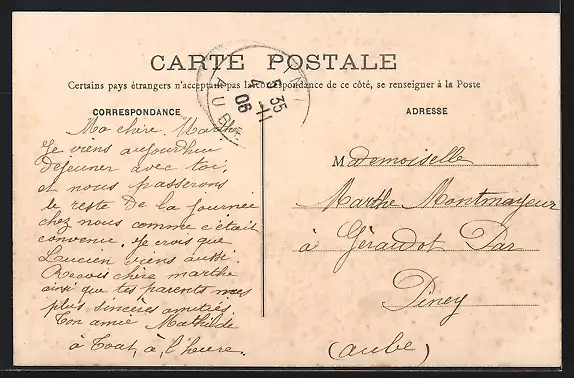 CARTE POSTALE
Certains pays étrangers n'acceptant pas la correspondance de ce côté, se renseigner à la Poste
CORRESPONDANCE
Ma chère Marthe
Je viens aujourdhui
dejeuner avec toi,
et nous passerons
le reste de la journée
chez nous comme c'était
convenu. Je crois que
Lucien viens aussi.
Recois chère marthe
ainsi que tes parents mes
plus sincères amitiés
Ton amie Mathilde
à Tout, à, l'heure.
ADRESSE
Mademoiselle
Marthe Montmayeur
à Géraudot Par
Piney
(Aube)
5 35
4 -11
06
AUBE